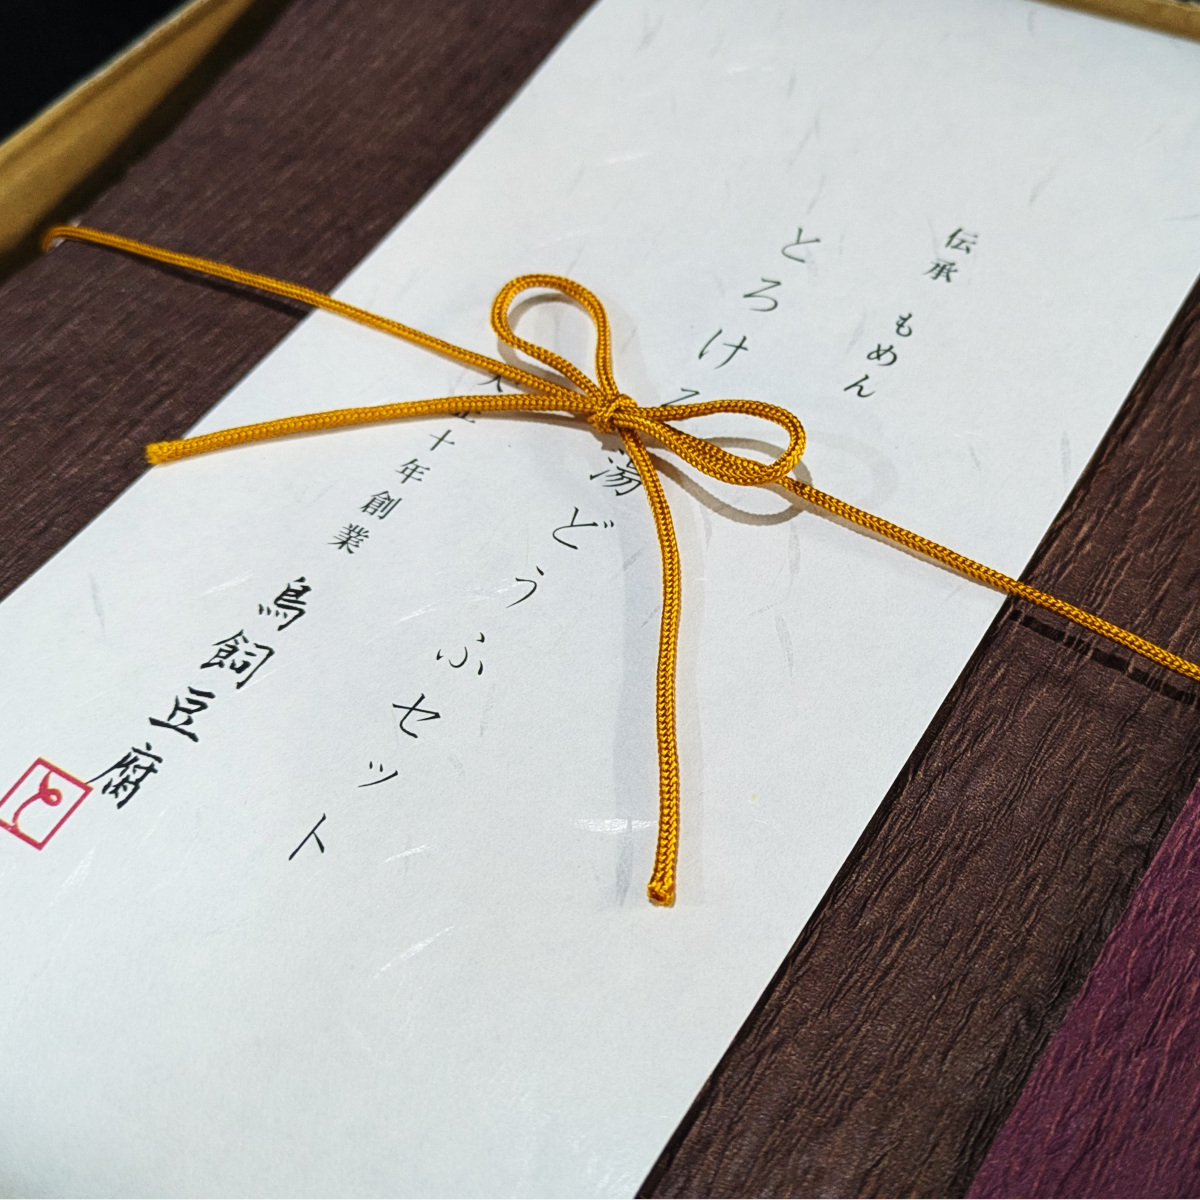 伝承 もめん
とろける湯どうふセット
大正十年創業
鳥飼豆腐
と